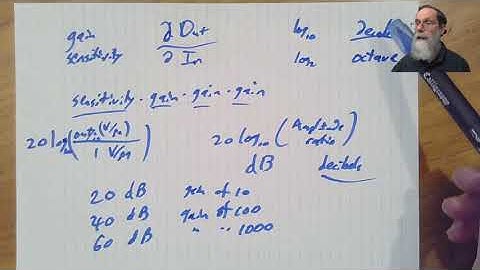 gain ∂ Out log10 decade
sensitivity ∂ In log2 octave
sensitivity · gain · gain · gain
20 log10 ( (V/Pa) / 1 V/Pa ) 20 log10 ( Amplitude ratio )
dB decibels
20 dB gain of 10
40 dB gain of 100
60 dB " " 1000